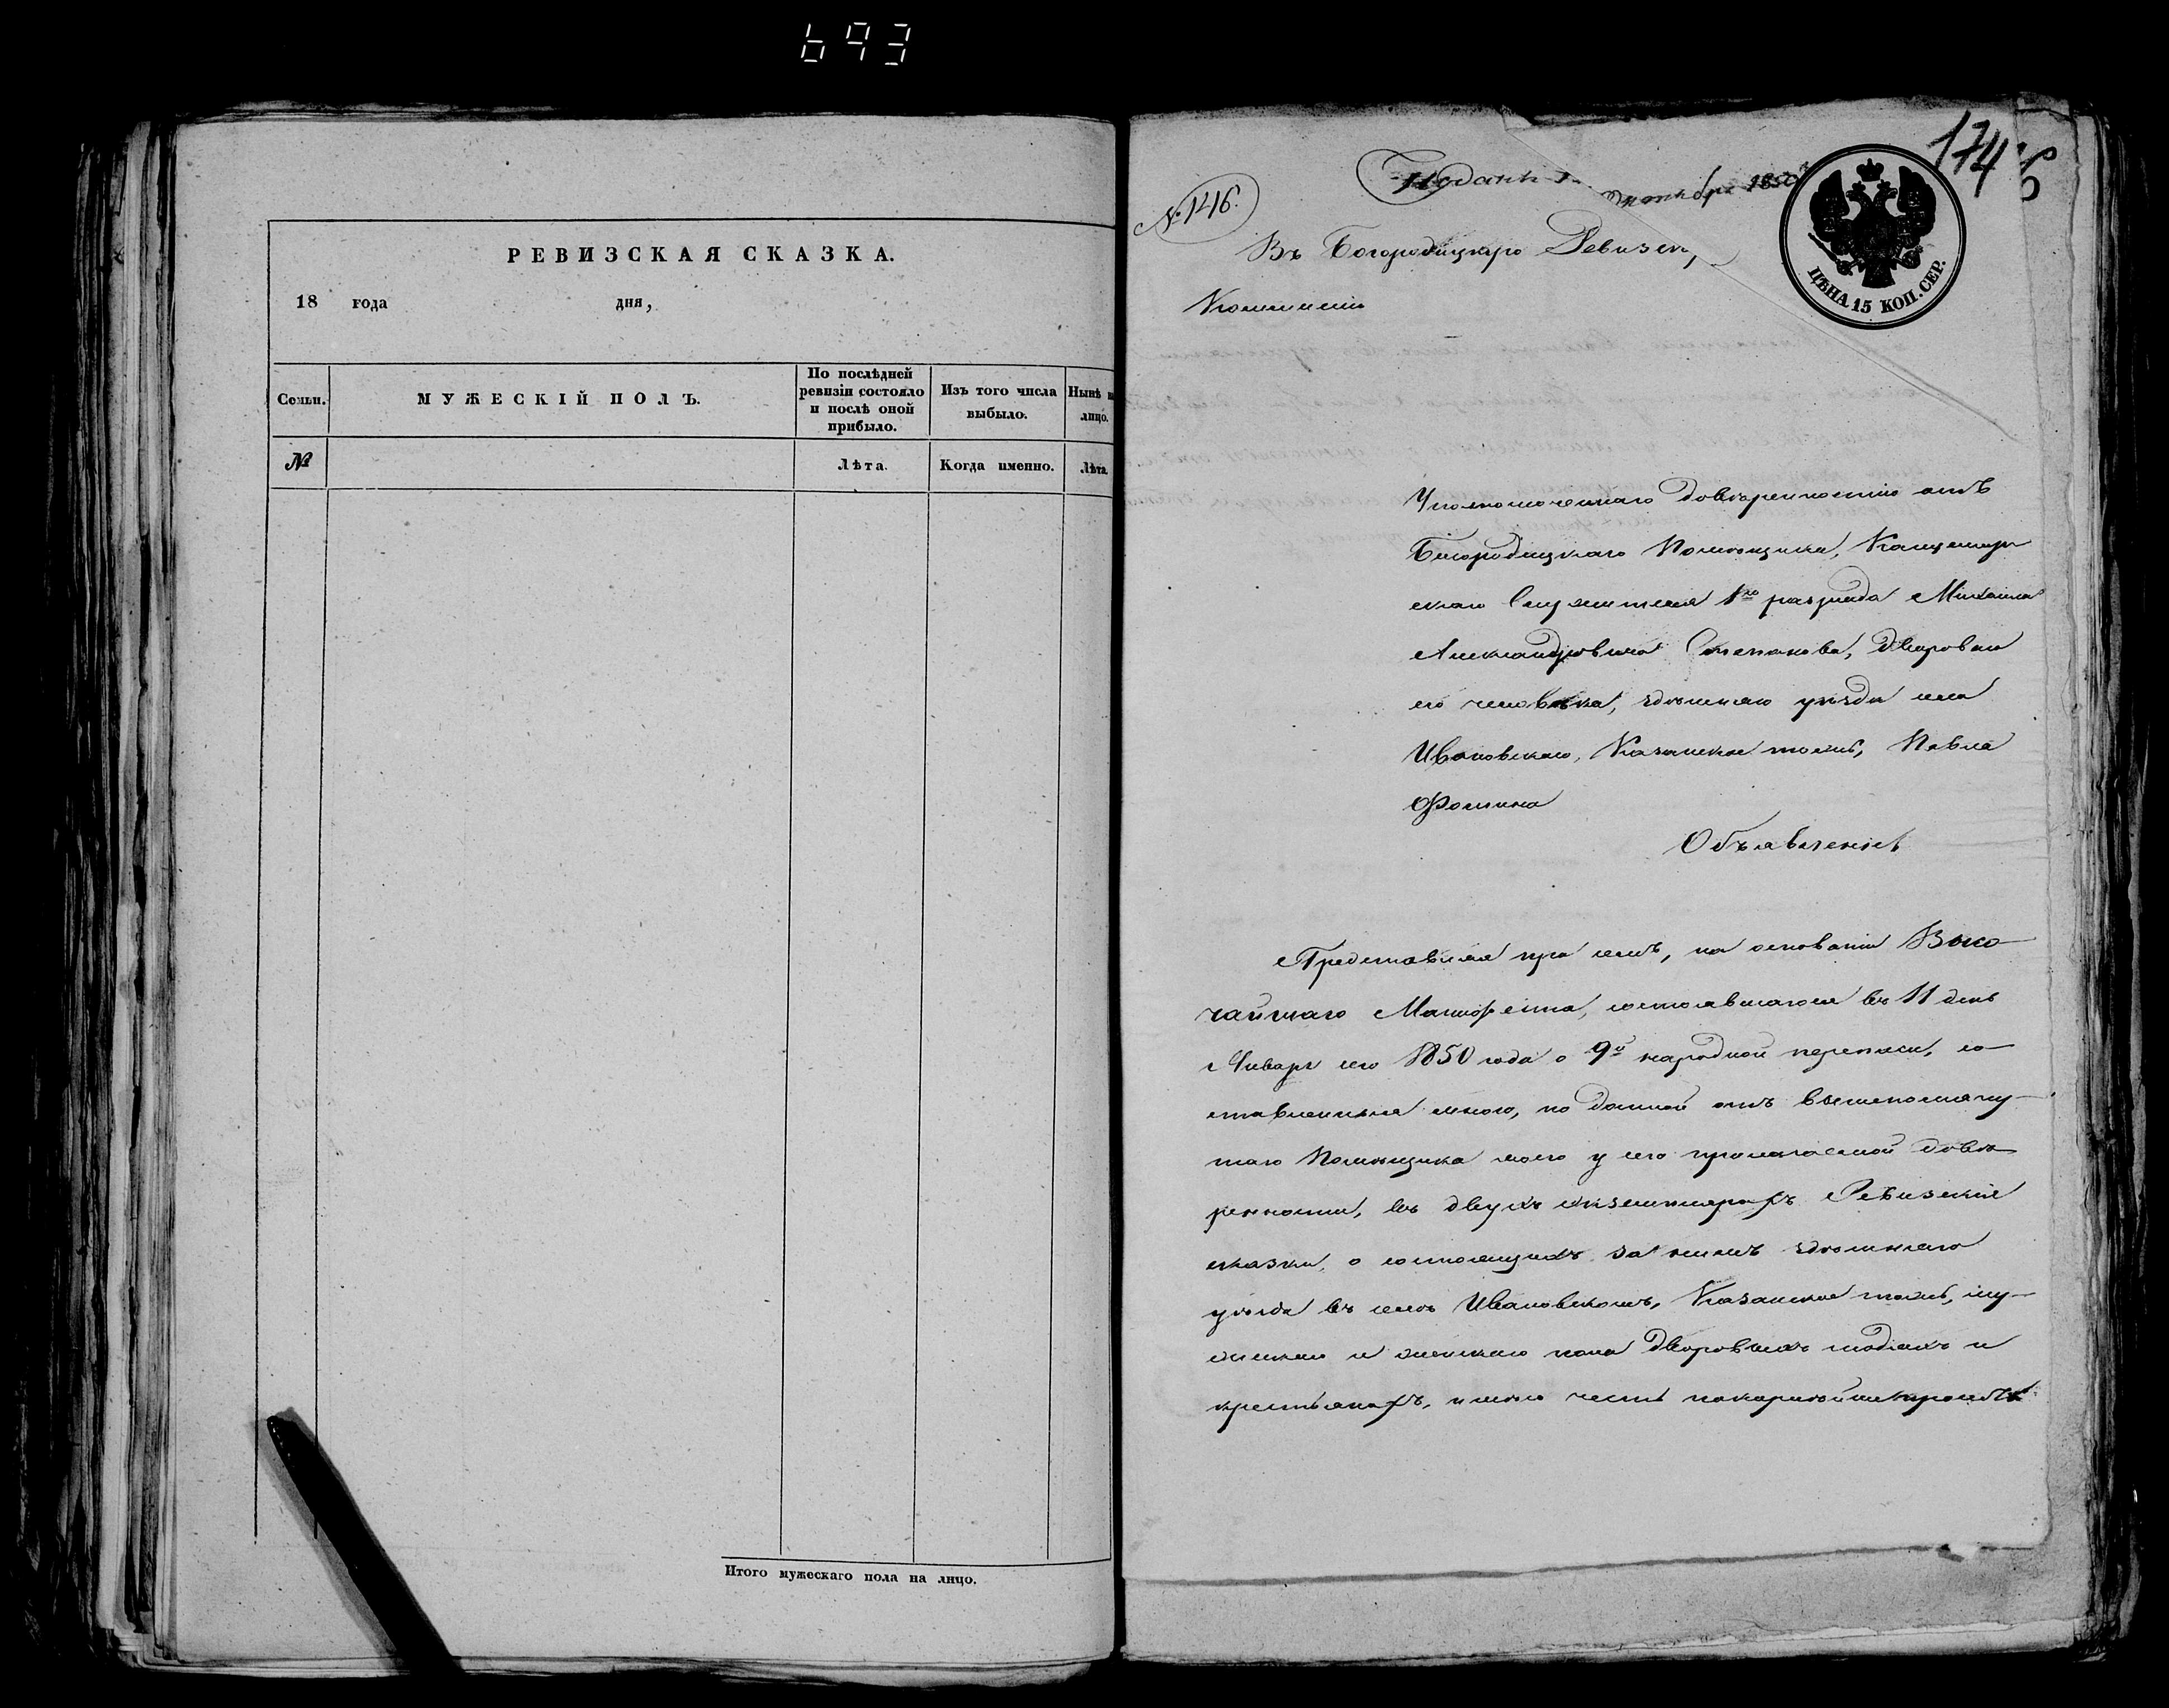 693
РЕВИЗСКАЯ СКАЗКА.
18 года дня,
Семьи. МУЖЕСКІЙ ПОЛЪ. По послѣдней ревизіи состояло и послѣ оной прибыло. Изъ того числа выбыло. Нынѣ на лицо.
№ Лѣта. Когда именно. Лѣта
Итого мужескаго пола на лицо.
174
Подано октября 1850
№ 146.
ЦѢНА 15 КОП. СЕР.
Въ Богородицкую Ревизск,
Коммисію
Уполномоченнаго довѣренностію отъ
Богородицкаго Помѣщика, Канцеляр
скаго Служителя 1го разряда Михаила
Александровича Степанова, дворова
его человѣка, здѣшняго уѣзда села
Ивановскаго, Казанское тожъ, Павла
Фомина
Объявленіе
Представляя при семъ, на основаніи Высо
чайшаго Манифеста, состоявшагося въ 11 день
Января сего 1850 года о 9й народной переписи, со
ставленныя мною, по данной отъ вышепомяну
таго Помѣщика моего у сего прилагаемой довѣ
ренности, въ двухъ экземплярахъ Ревизскія
сказки, о состоящихъ за нимъ здѣшняго
уѣзда въ селѣ Ивановскомъ, Казанское тожъ, му
жескаго и женскаго пола дворовыхъ людяхъ и
крестьянахъ, имѣю честь покорнѣйше просить